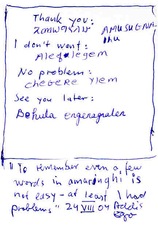 Thank you:
I don't want:
Alefelegem
No problem:
CHEGERE YLEM
See you later:
Bohula
"To remember even a few
words in amaringhi is
not easy - at least I had
problems" 24 VIII 04 Addis